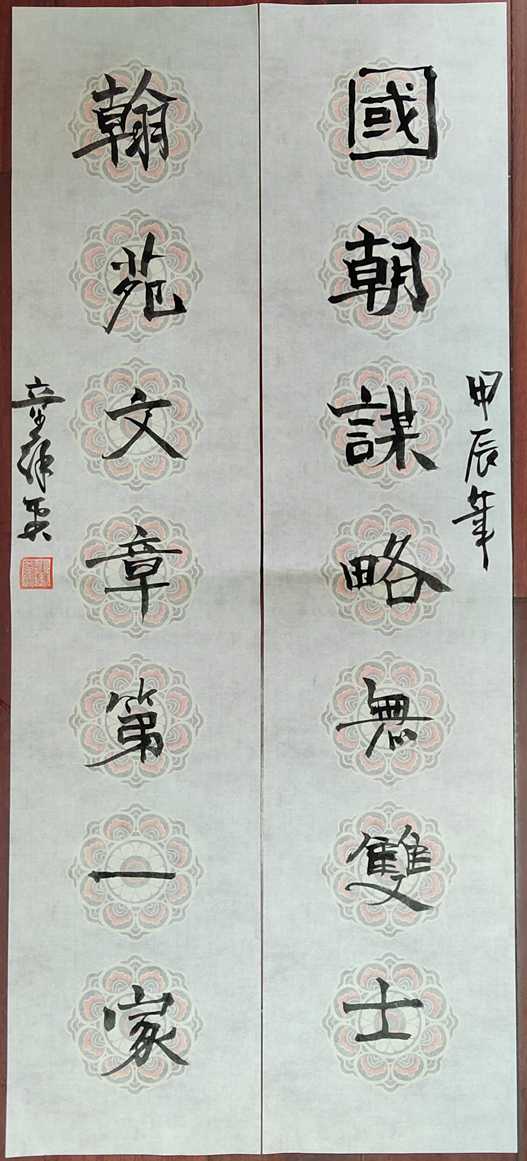 甲辰年
國朝謀略無雙士
翰苑文章第一家